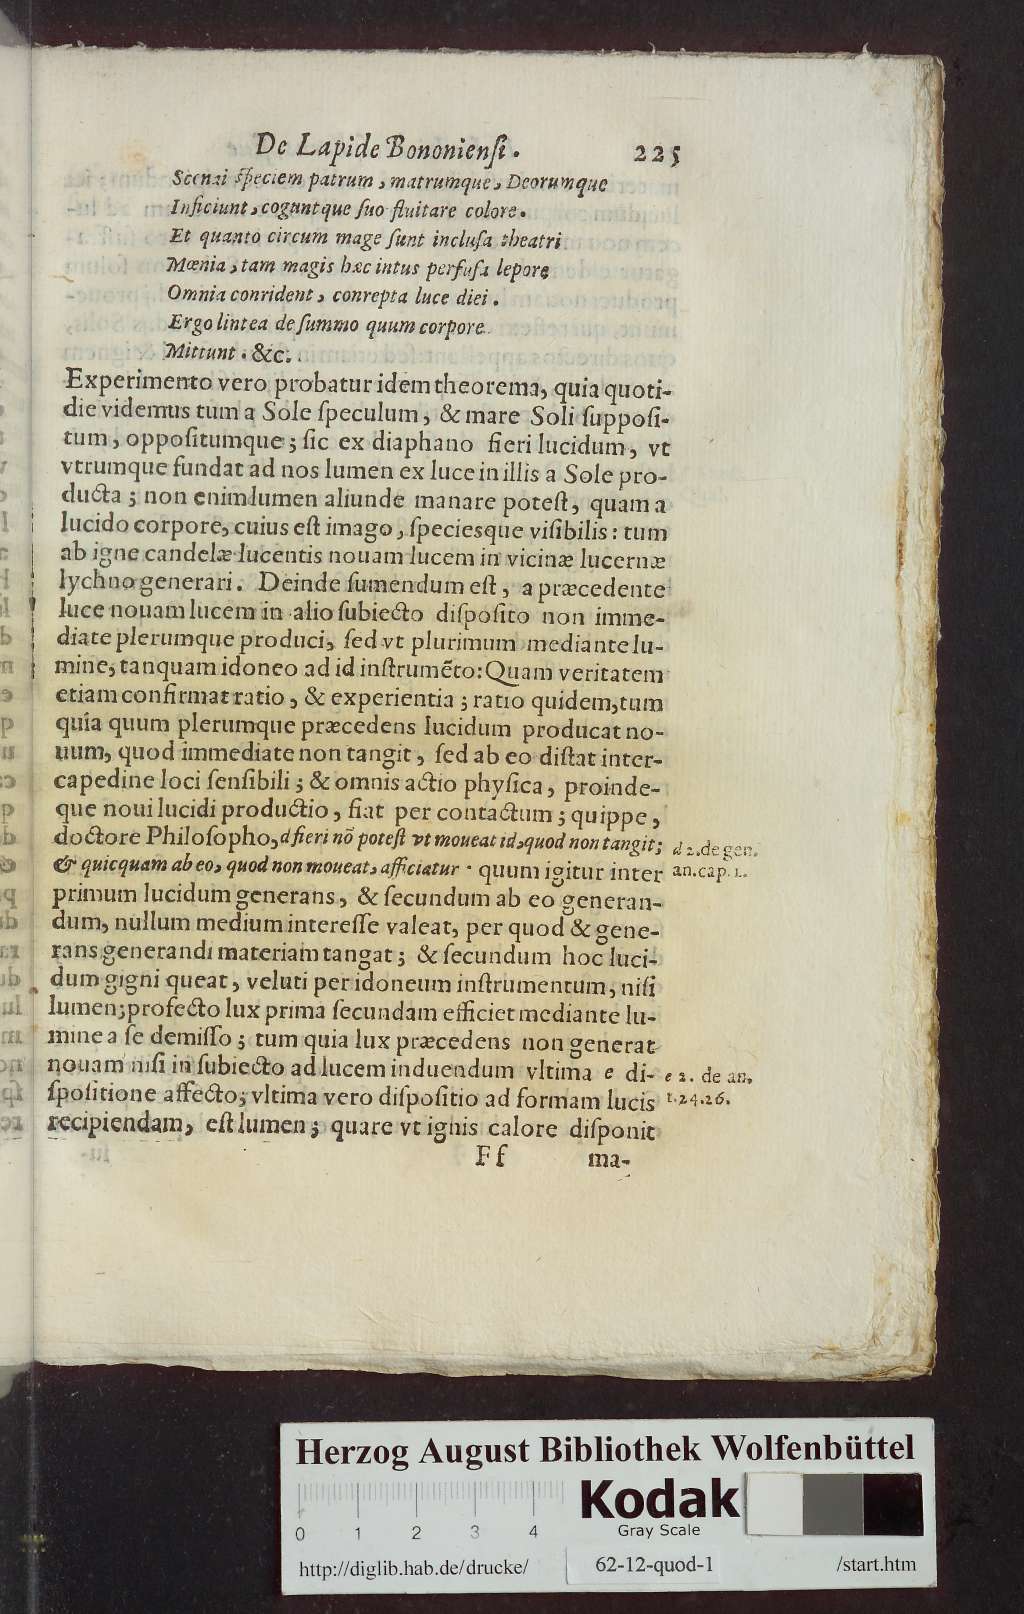 De Lapide Bononiensi. 225
Scenai speciem patrum, matrumque, Deorumque
Inficiunt, coguntque suo fluitare colore.
Et quanto circum mage sunt inclusa theatri
Mœnia, tam magis hæc intus perfusa lepore
Omnia conrident, conrepta luce diei.
Ergo lintea de summo quum corpore
Mittunt. &c.
Experimento vero probatur idem theorema, quia quoti-
die videmus tum a Sole speculum, & mare Soli supposi-
tum, oppositumque; sic ex diaphano fieri lucidum, vt
vtrumque fundat ad nos lumen ex luce in illis a Sole pro-
ducta; non enim lumen aliunde manare potest, quam a
lucido corpore, cuius est imago, speciesque visibilis: tum
ab igne candelæ lucentis nouam lucem in vicinæ lucernæ
lychno generari. Deinde sumendum est, a præcedente
luce nouam lucem in alio subiecto disposito non imme-
diate plerumque produci, sed vt plurimum mediante lu-
mine, tanquam idoneo ad id instrumẽto: Quam veritatem
etiam confirmat ratio, & experientia; ratio quidem, tum
quia quum plerumque præcedens lucidum producat no-
uum, quod immediate non tangit, sed ab eo distat inter-
capedine loci sensibili; & omnis actio physica, proinde-
que noui lucidi productio, fiat per contactum; quippe,
doctore Philosopho, d fieri nõ potest vt moueat id, quod non tangit;
& quicquam ab eo, quod non moueat, afficiatur. quum igitur inter
primum lucidum generans, & secundum ab eo generan-
dum, nullum medium interesse valeat, per quod & gene-
rans generandi materiam tangat; & secundum hoc luci-
dum gigni queat, veluti per idoneum instrumentum, nisi
lumen; profecto lux prima secundam efficiet mediante lu-
mine a se demisso; tum quia lux præcedens non generat
nouam nisi in subiecto ad lucem induendum vltima e di-
spositione affecto; vltima vero dispositio ad formam lucis
recipiendam, est lumen; quare vt ignis calore disponit
Ff ma-
d 2. de gen.
an. cap. 1.
e 2. de an.
t. 24. 26.
Herzog August Bibliothek Wolfenbüttel
Kodak
Gray Scale
0 1 2 3 4
http://diglib.hab.de/drucke/ 62-12-quod-1 /start.htm